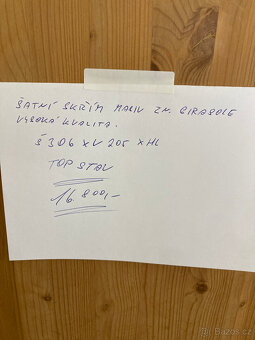 ŠATNÍ SKŘÍŇ MASIV ZN. GIRASOLE
VYSOKÁ KVALITA.
Š 306 x V 205 x HL
TOP STAV
16.800,-
Bazoš.cz